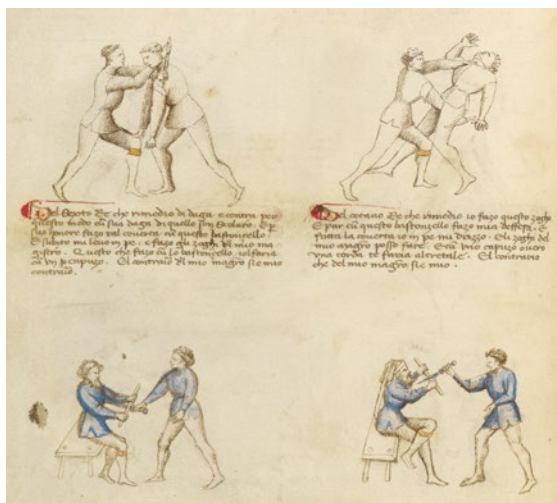 Del Sexto Re che rimedio di daga e contra per
questo modo cū sua daga di quello son Scolaro. E p
suo honore fazo tal couerta cū questo bastoncello
E subito mi leuo in pe. e fazo gli zoghi di mio ma
gistro. Questo che fazo cū lo bastoncello. Io l faria
cū un p capuzo. El contrario di mio magro sie mio
contrario.
Del otauo Re che rimedio io fazo questo zogho
E pur cū questo bastonzello fazo mia deffesa. E
fatta la couerta io in pe mi drezo. Eli zoghi del
mio magro posso fare. E cū uno capuzo ouero
una corda te faria altretale. El contrario
che del mio magro sie mio.